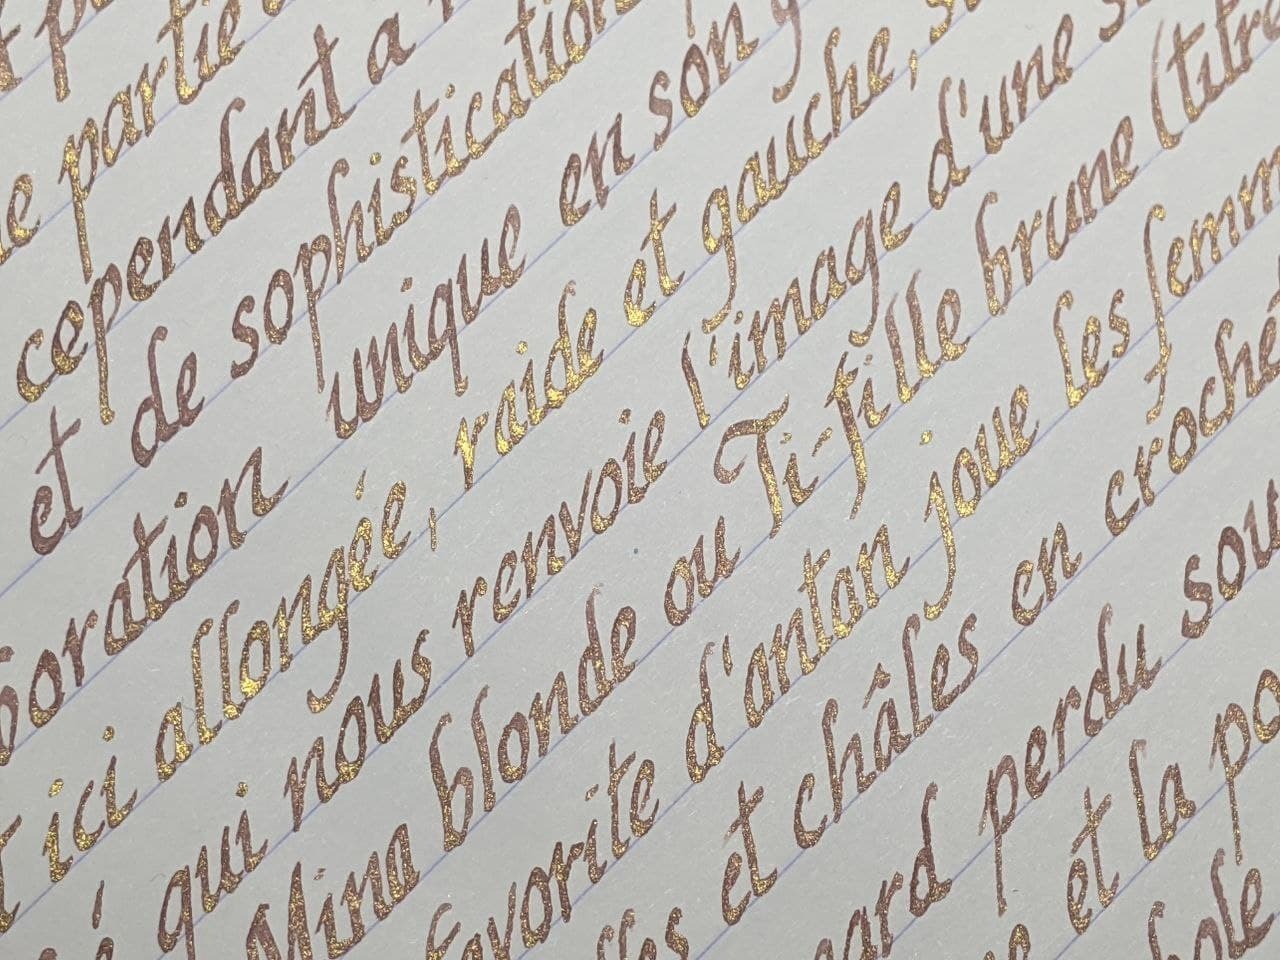 partie
cependant a
et de sophistication
boration unique en son g
ici allongée, raide et gauche, s
qui nous renvoie l'image d'une s
Mina blonde ou Ti-fille brune (titre
favorite d'antan joue les femm
et châles en croché
ard perdu sou
et la po
bole